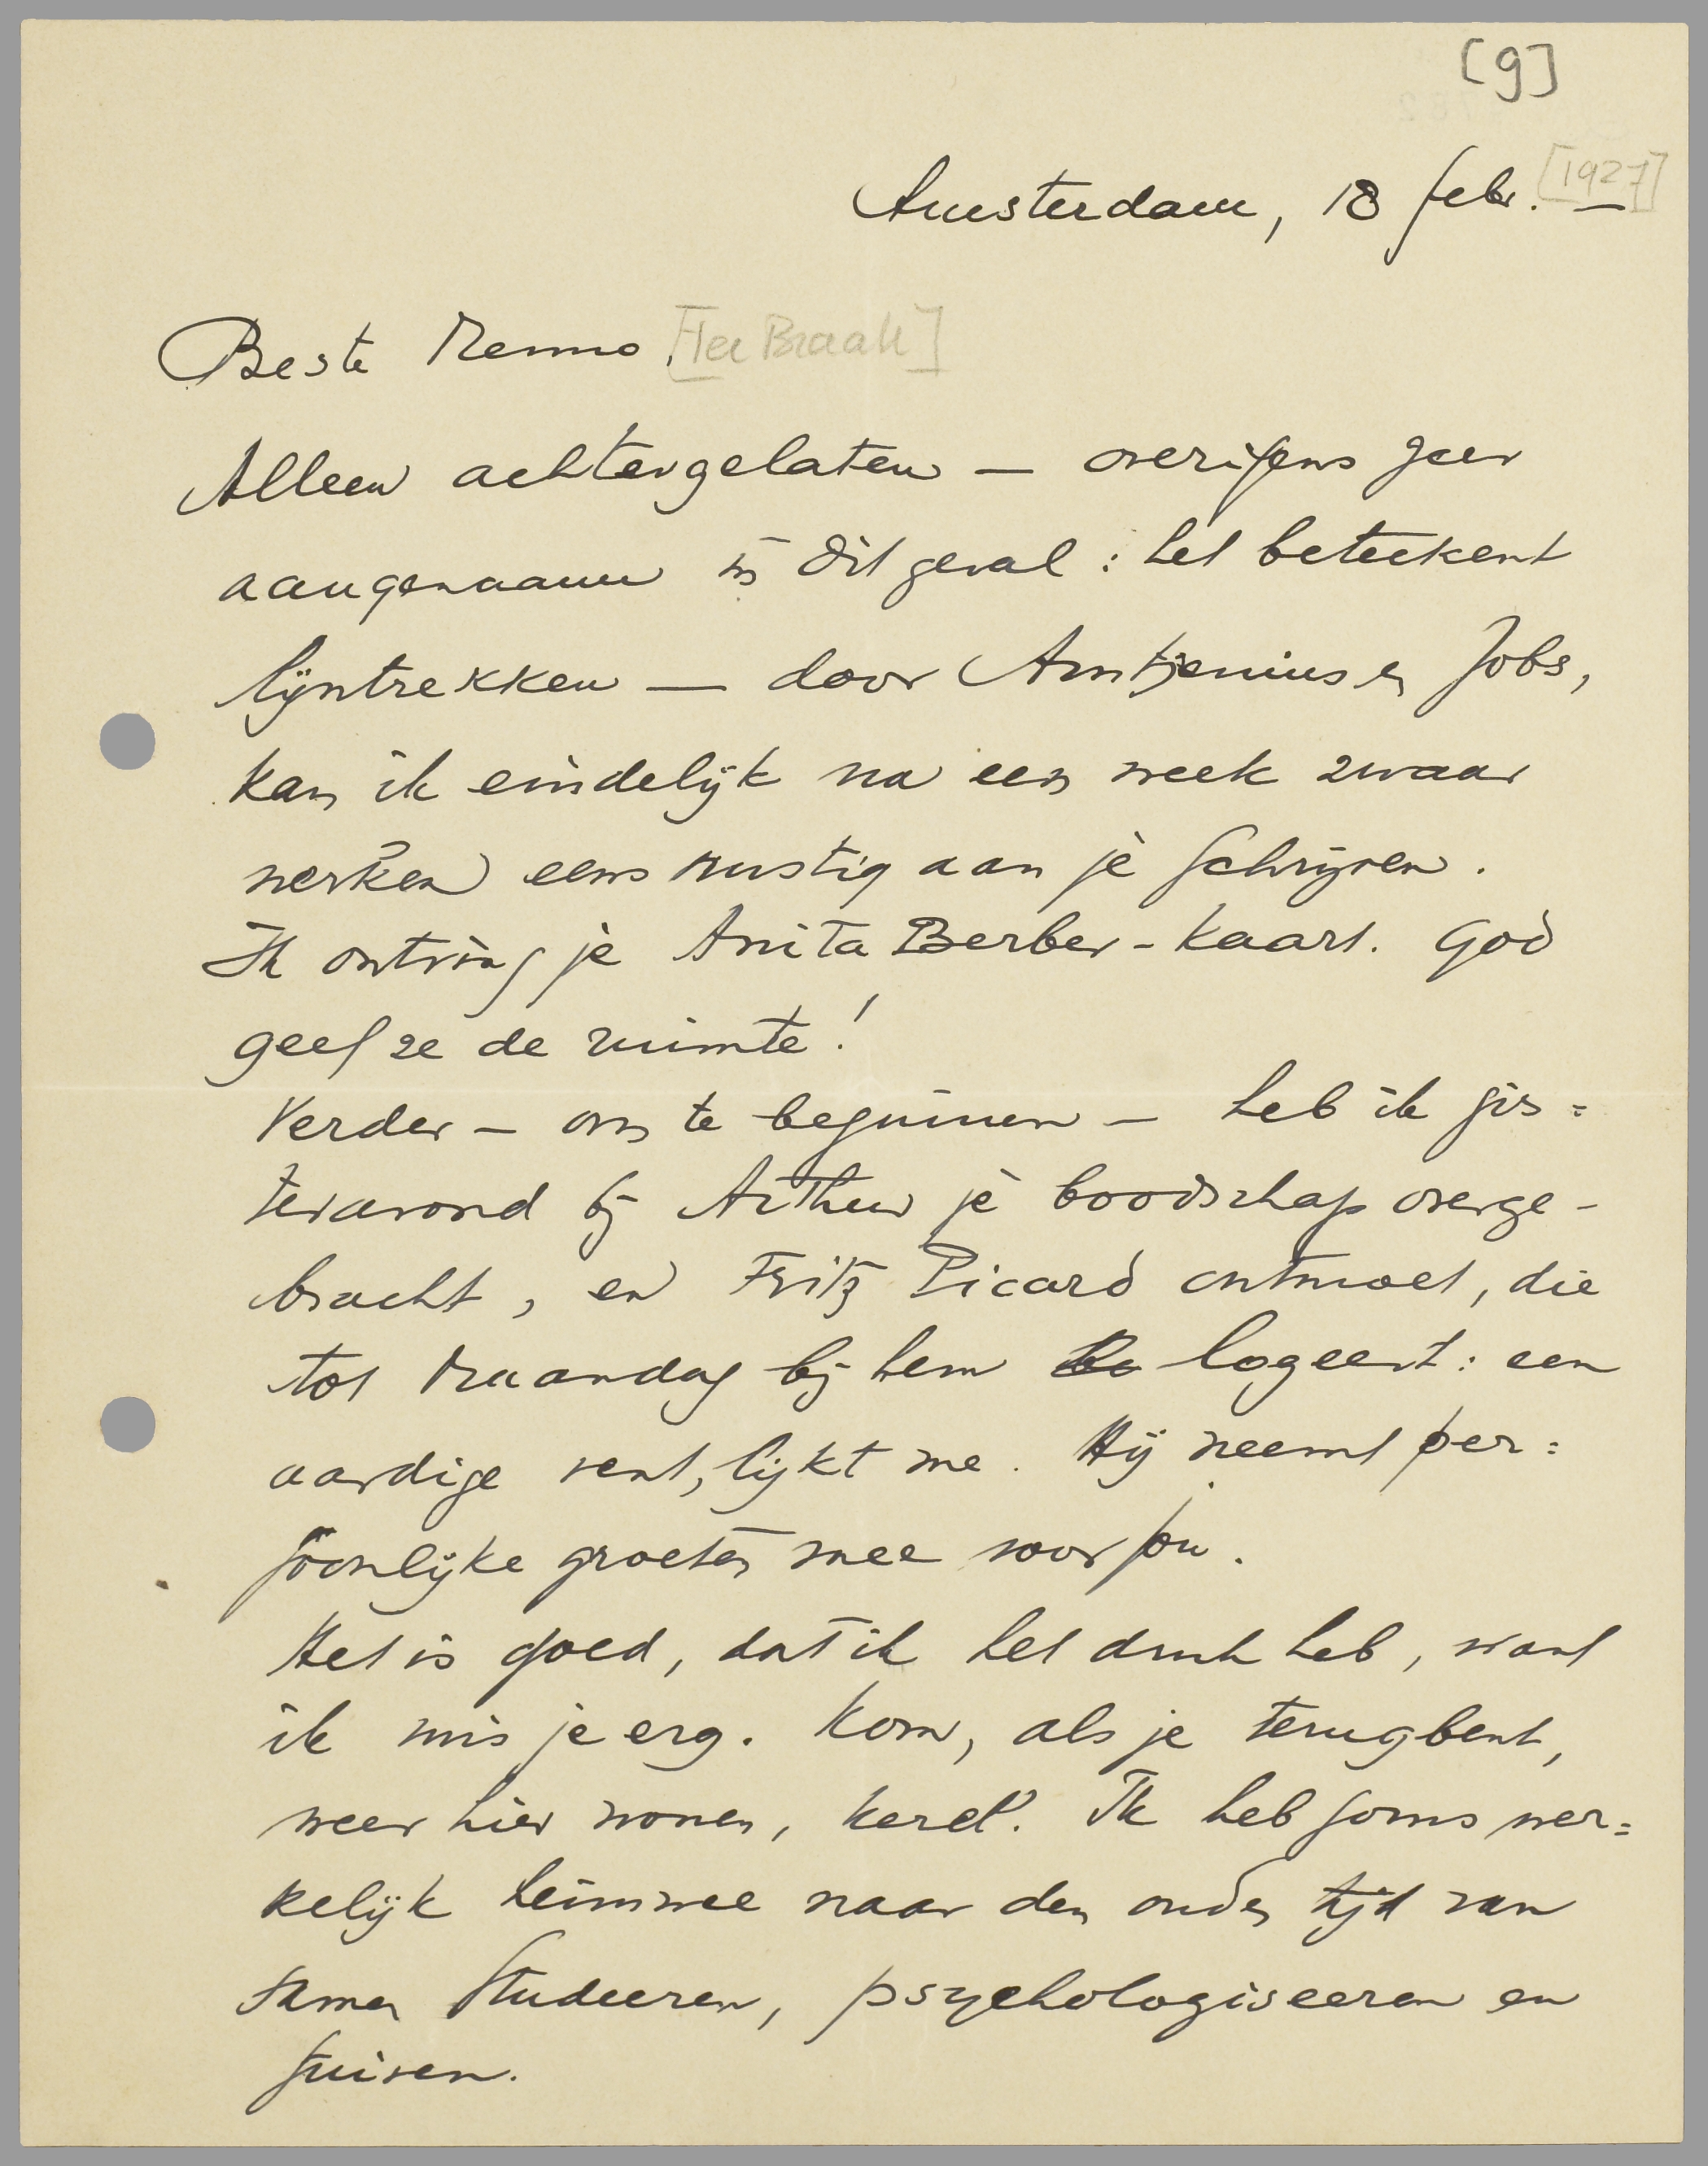 [9]
Amsterdam, 18 febr. [1927]
Beste Menno [Ter Braak]
Alleen achtergelaten — overigens zeer
aangenaam in dit geval: het beteekent
lijntrekken — door Arntzenius en Jobs,
kan ik eindelijk na een week zwaar
werken eens rustig aan je schrijven.
Ik ontving je Anita Berber-kaart. God
geef ze de ruimte!
Verder — om te beginnen — heb ik gis=
teravond bij Arthur je boodschap overge-
bracht, en Fritz Picard ontmoet, die
tot Maandag bij hem logeert: een
aardige vent, lijkt me. Hij neemt per=
soonlijke groeten mee voor jou.
Het is goed, dat ik het druk heb, want
ik mis je erg. Kom, als je terugbent,
weer hier wonen, kerel! Ik heb soms wer=
kelijk heimwee naar den ouden tijd van
samen studeeren, psychologiseeren en
fuiven.